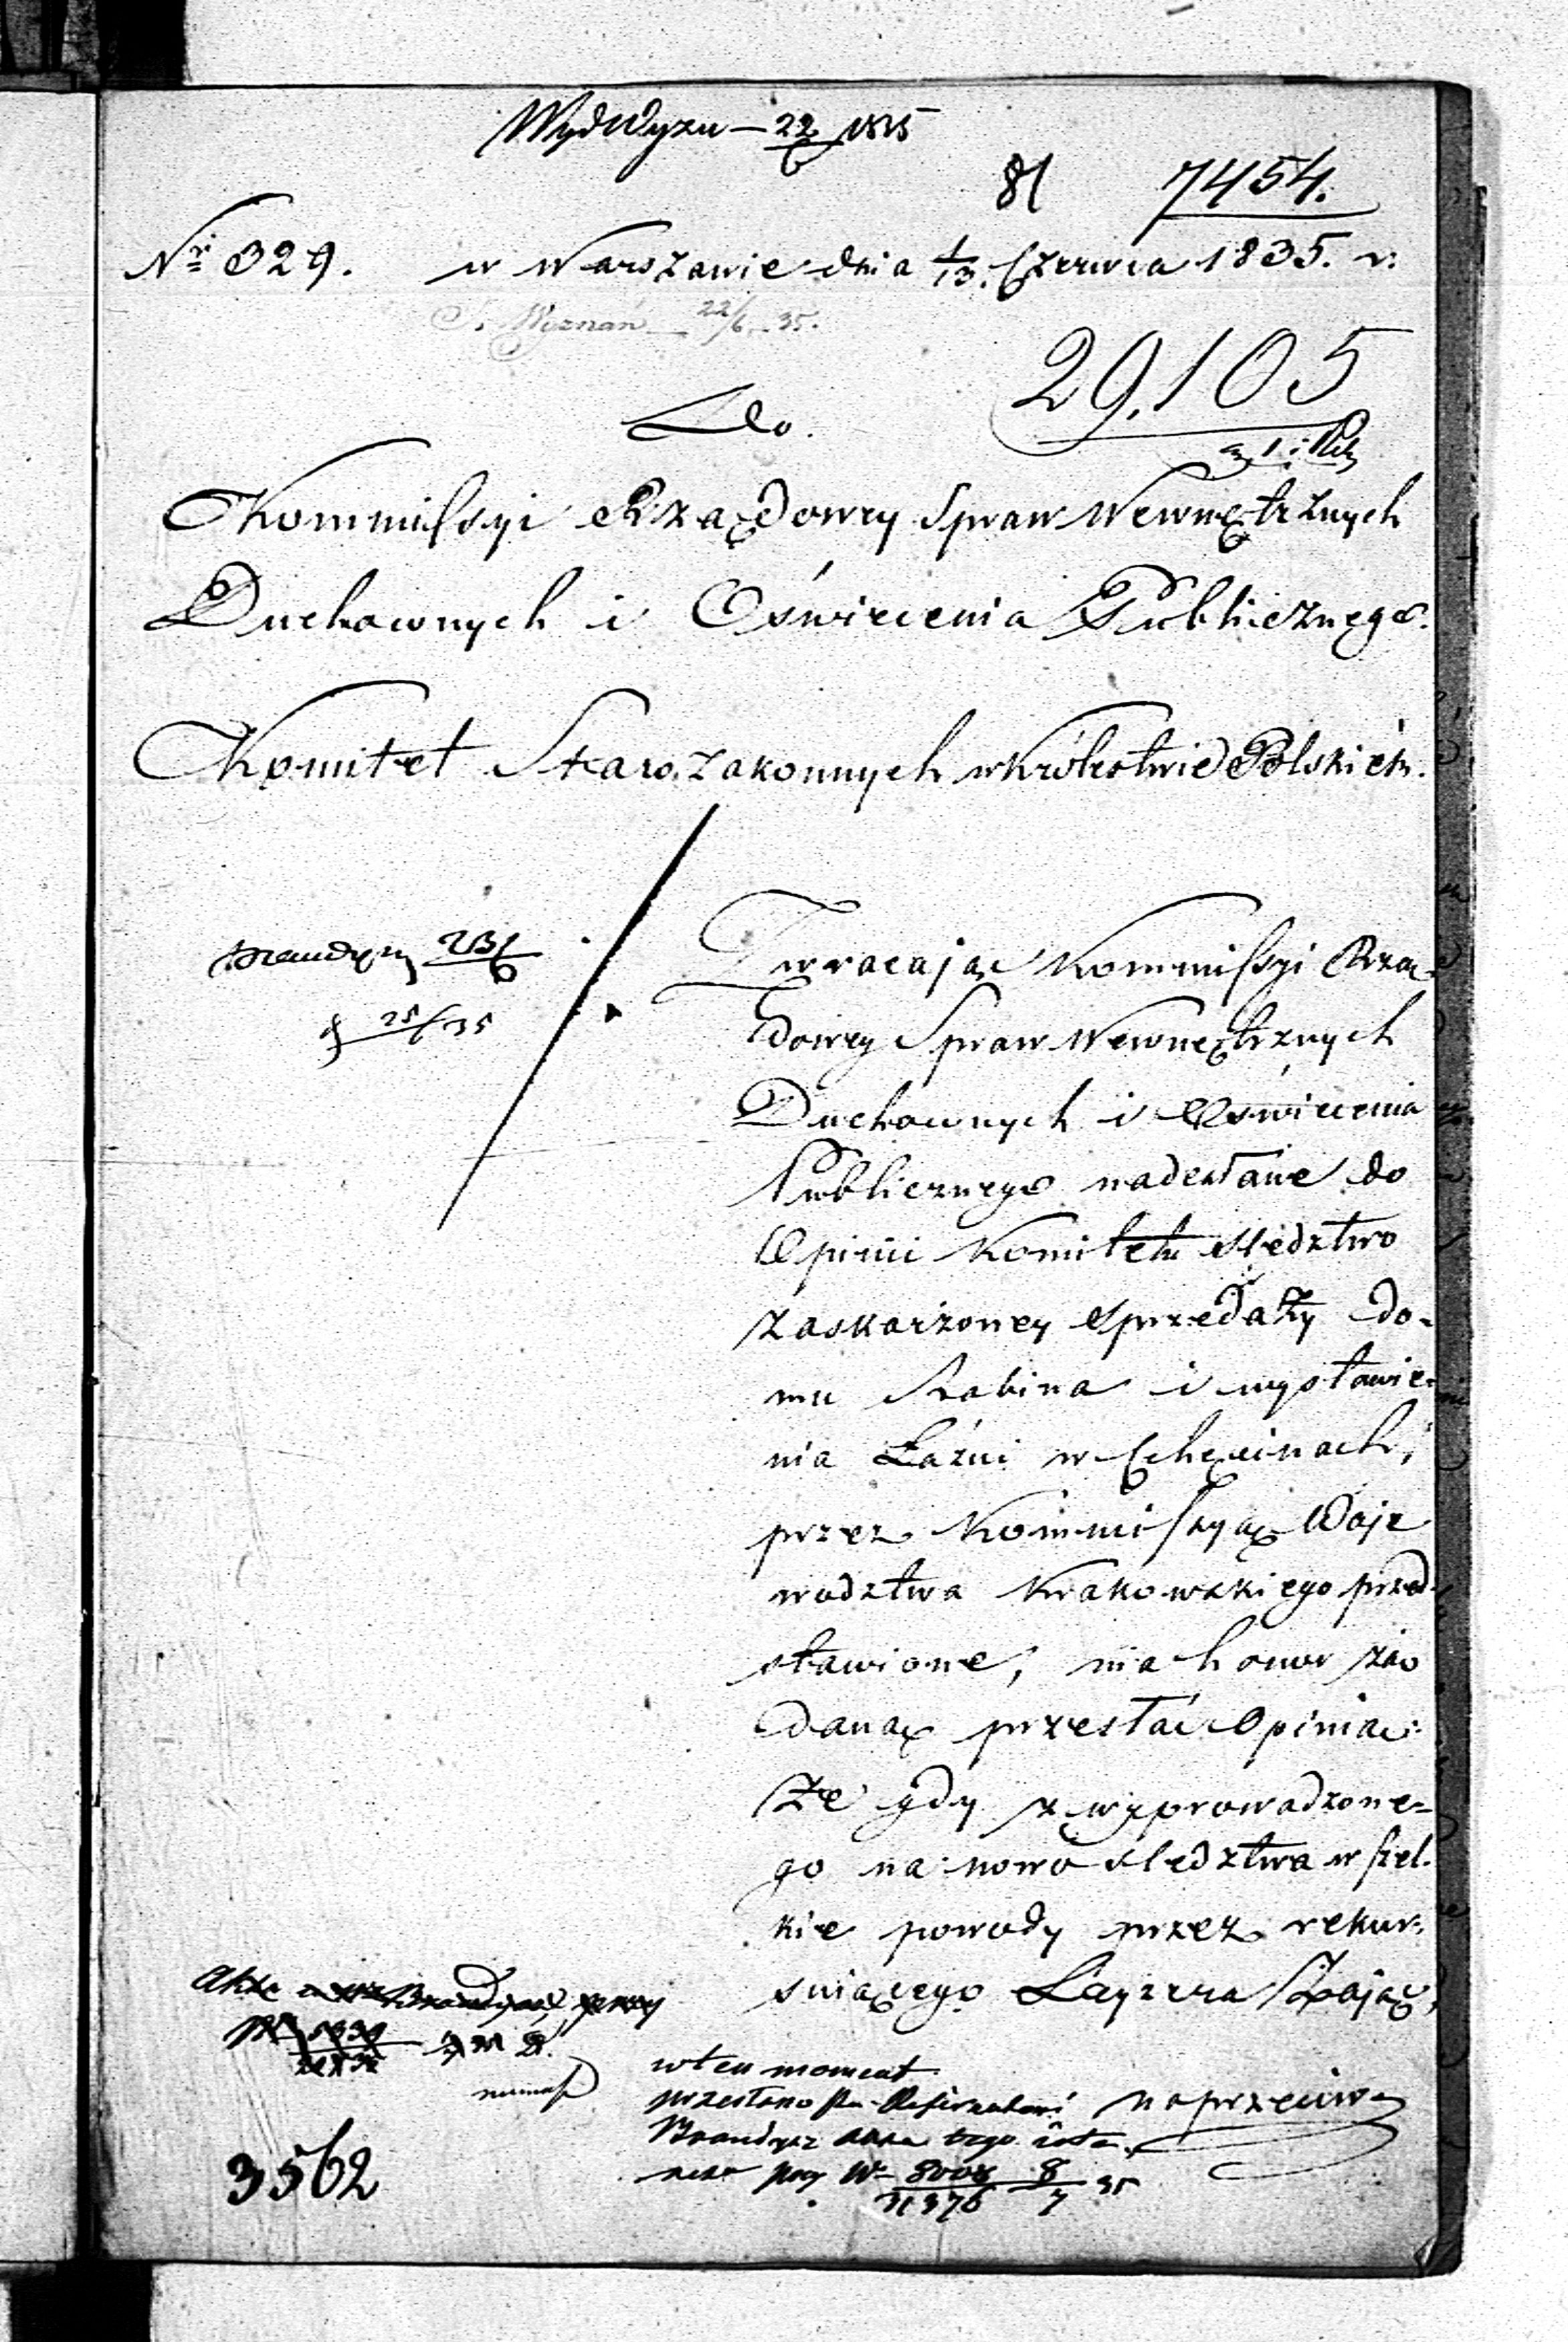 22/6 1835
81 7454.
Nr 329. w Warszawie dnia 1/13. Czerwca 1835. r.
Wyznań 22/6 35.
29,105
Do
Kommissyi Rządowey Spraw Wewnętrznych
Duchownych i Oświecenia Publicznego.
Komitet Starozakonnych w Królestwie Polskiém.
Zwracając Kommissyi Rzą-
dowey Spraw Wewnętrznych
Duchownych i Oświecenia
Publicznego nadesłane do
Opinii Komitetu śledztwo
zaskarżoney sprzedaży do-
mu Rabina i wystawie-
nia Łaźni w Chęcinach,
przez Kommissyą Woje
wodztwa Krakowskiego przed-
stawione, ma honor żą
daną przesłać Opinią:
Że gdy z wyprowadzone-
go na nowo śledztwa wszel-
kie powody przez rekur-
suiącego Layzera Zająć,
naprzeciw
25/35
w ten moment
przesłano
akta tego
przy Nr 8008 8/7 35
31376
3562